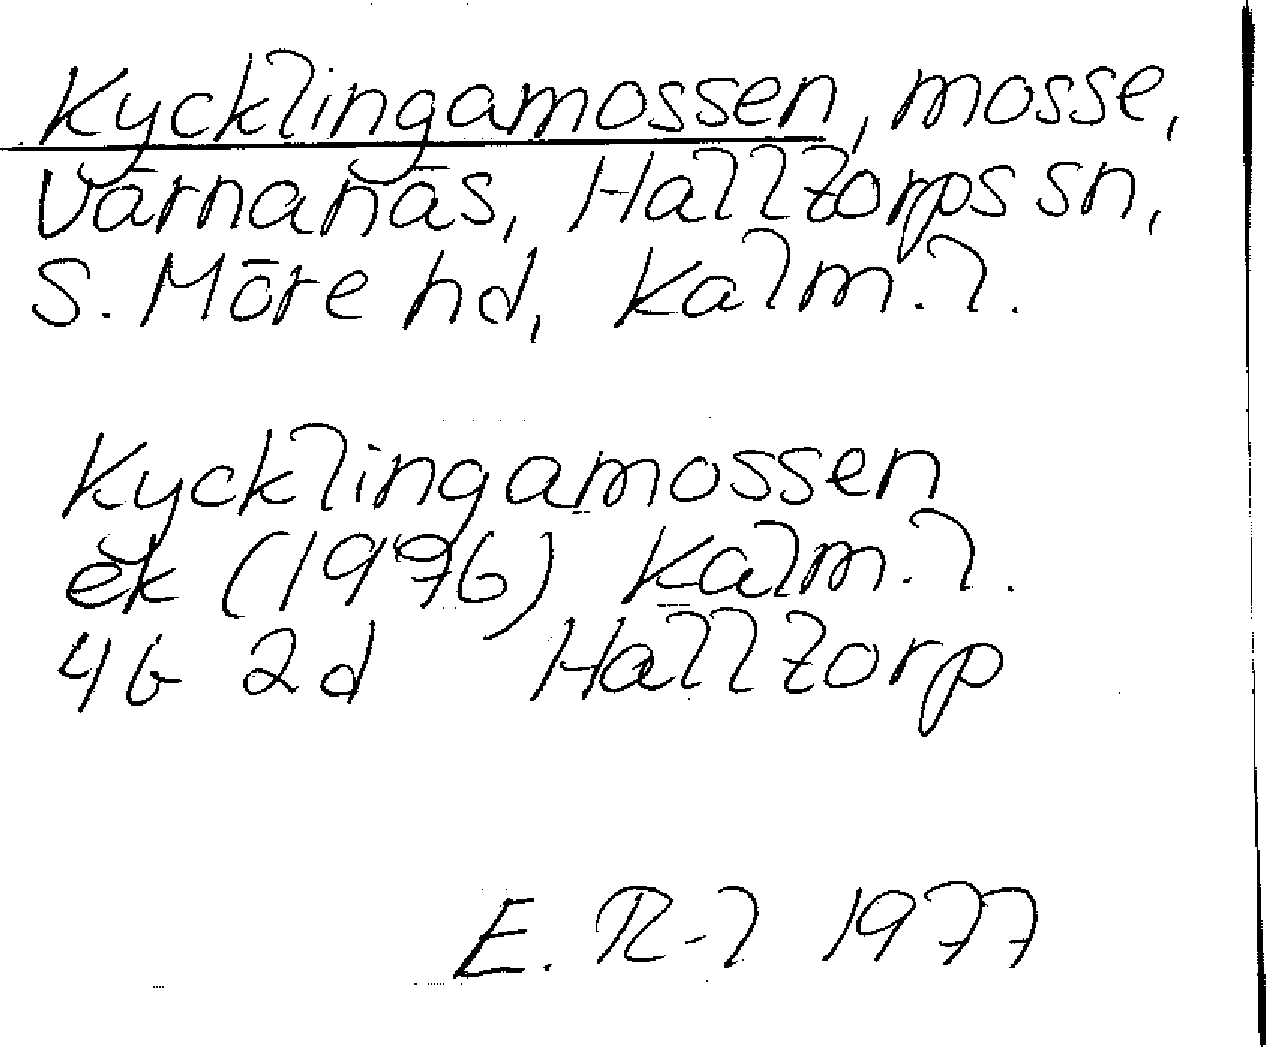 Kycklingamossen, mosse,
Värnanäs, Halltorps sn,
S. Möre hd, Kalm. l.
Kycklingamossen
ek (1976) Kalm. l.
4G 2d Halltorp
E. R-l 1977